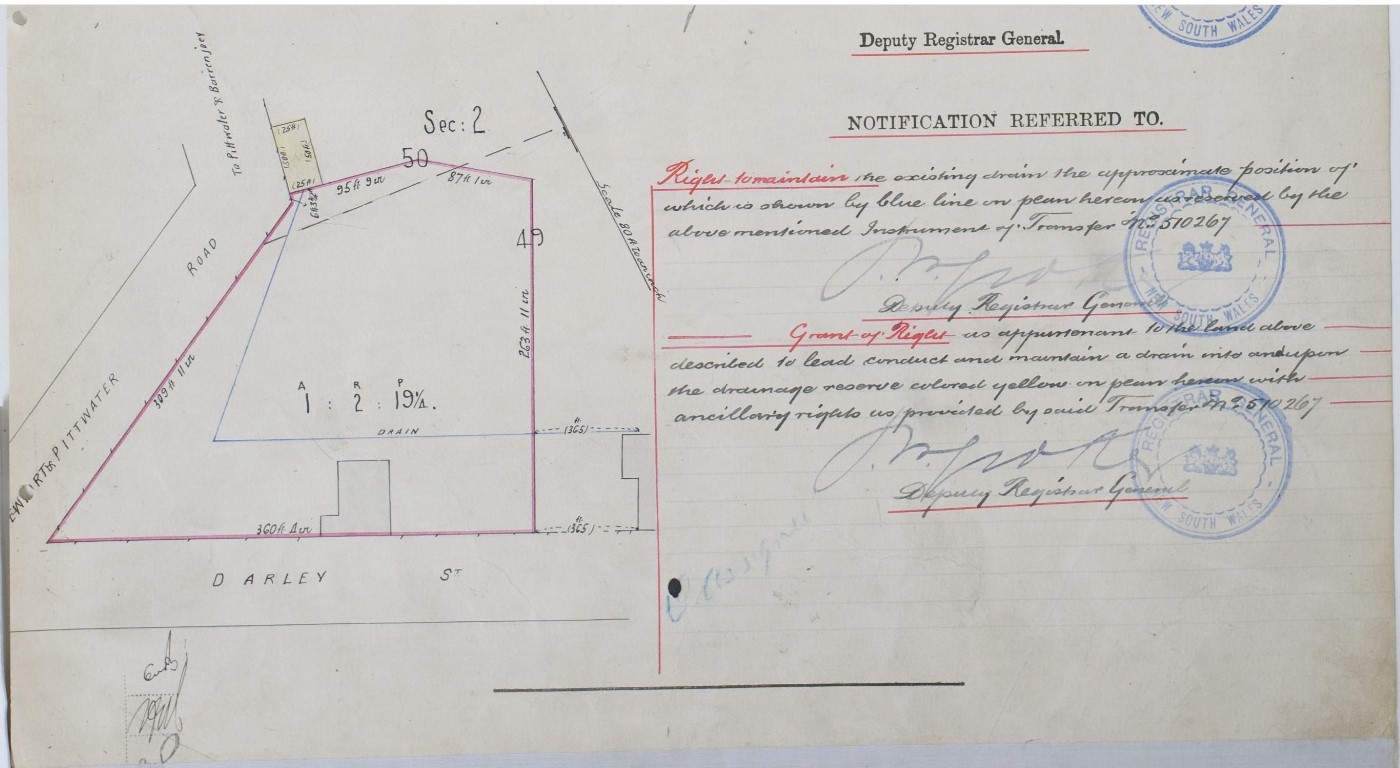 NEW SOUTH WALES
Deputy Registrar General.
NOTIFICATION REFERRED TO.
Right to maintain the existing drain the approximate position of
which is shown by blue line on plan hereon as reserved by the
above mentioned Instrument of Transfer No. 510267
Deputy Registrar General
Grant of Right as appurtenant to the land above
described to lead conduct and maintain a drain into and upon
the drainage reserve colored yellow on plan hereon with
ancillary rights as provided by said Transfer No. 510267
Deputy Registrar General
REGISTRAR GENERAL
NEW SOUTH WALES
REGISTRAR GENERAL
NEW SOUTH WALES
To Pittwater & Barrenjoey
Sec: 2
50
(25ft)
(50ft)
(50ft)
(25ft)
95 ft 9 in
87 ft 1 in
Scale 80 ft to an inch
49
ROAD
263 ft 11 in
309 ft 11 in
A R P
1 : 2 : 19¼.
PITTWATER
DRAIN
ft
(365)
360 ft 4 in
ft
(365)
DARLEY ST